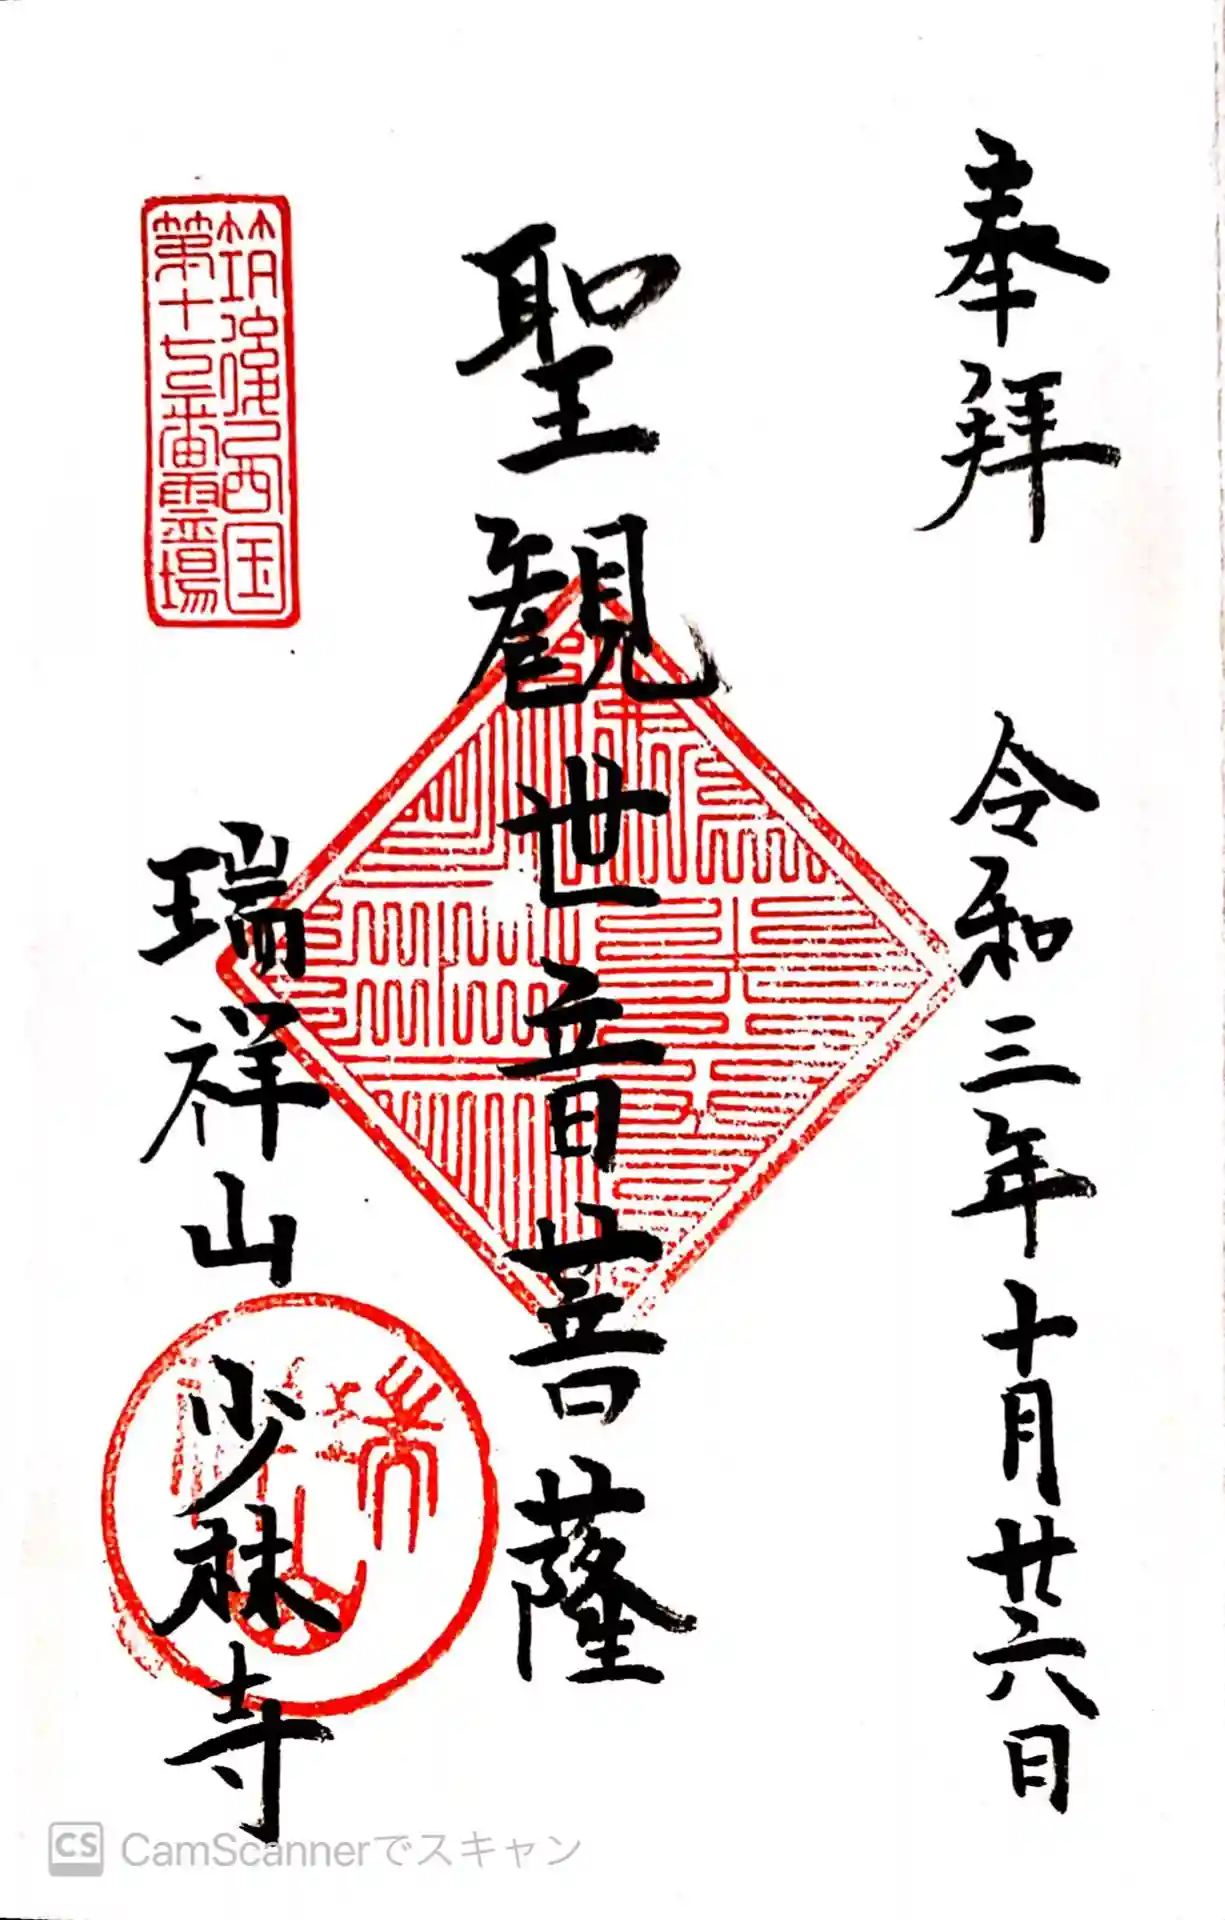 奉拜 令和三年十月廿六日
聖觀世音菩薩
筑後西国
第十七番霊場
瑞祥山 少林寺
CS CamScannerでスキャン